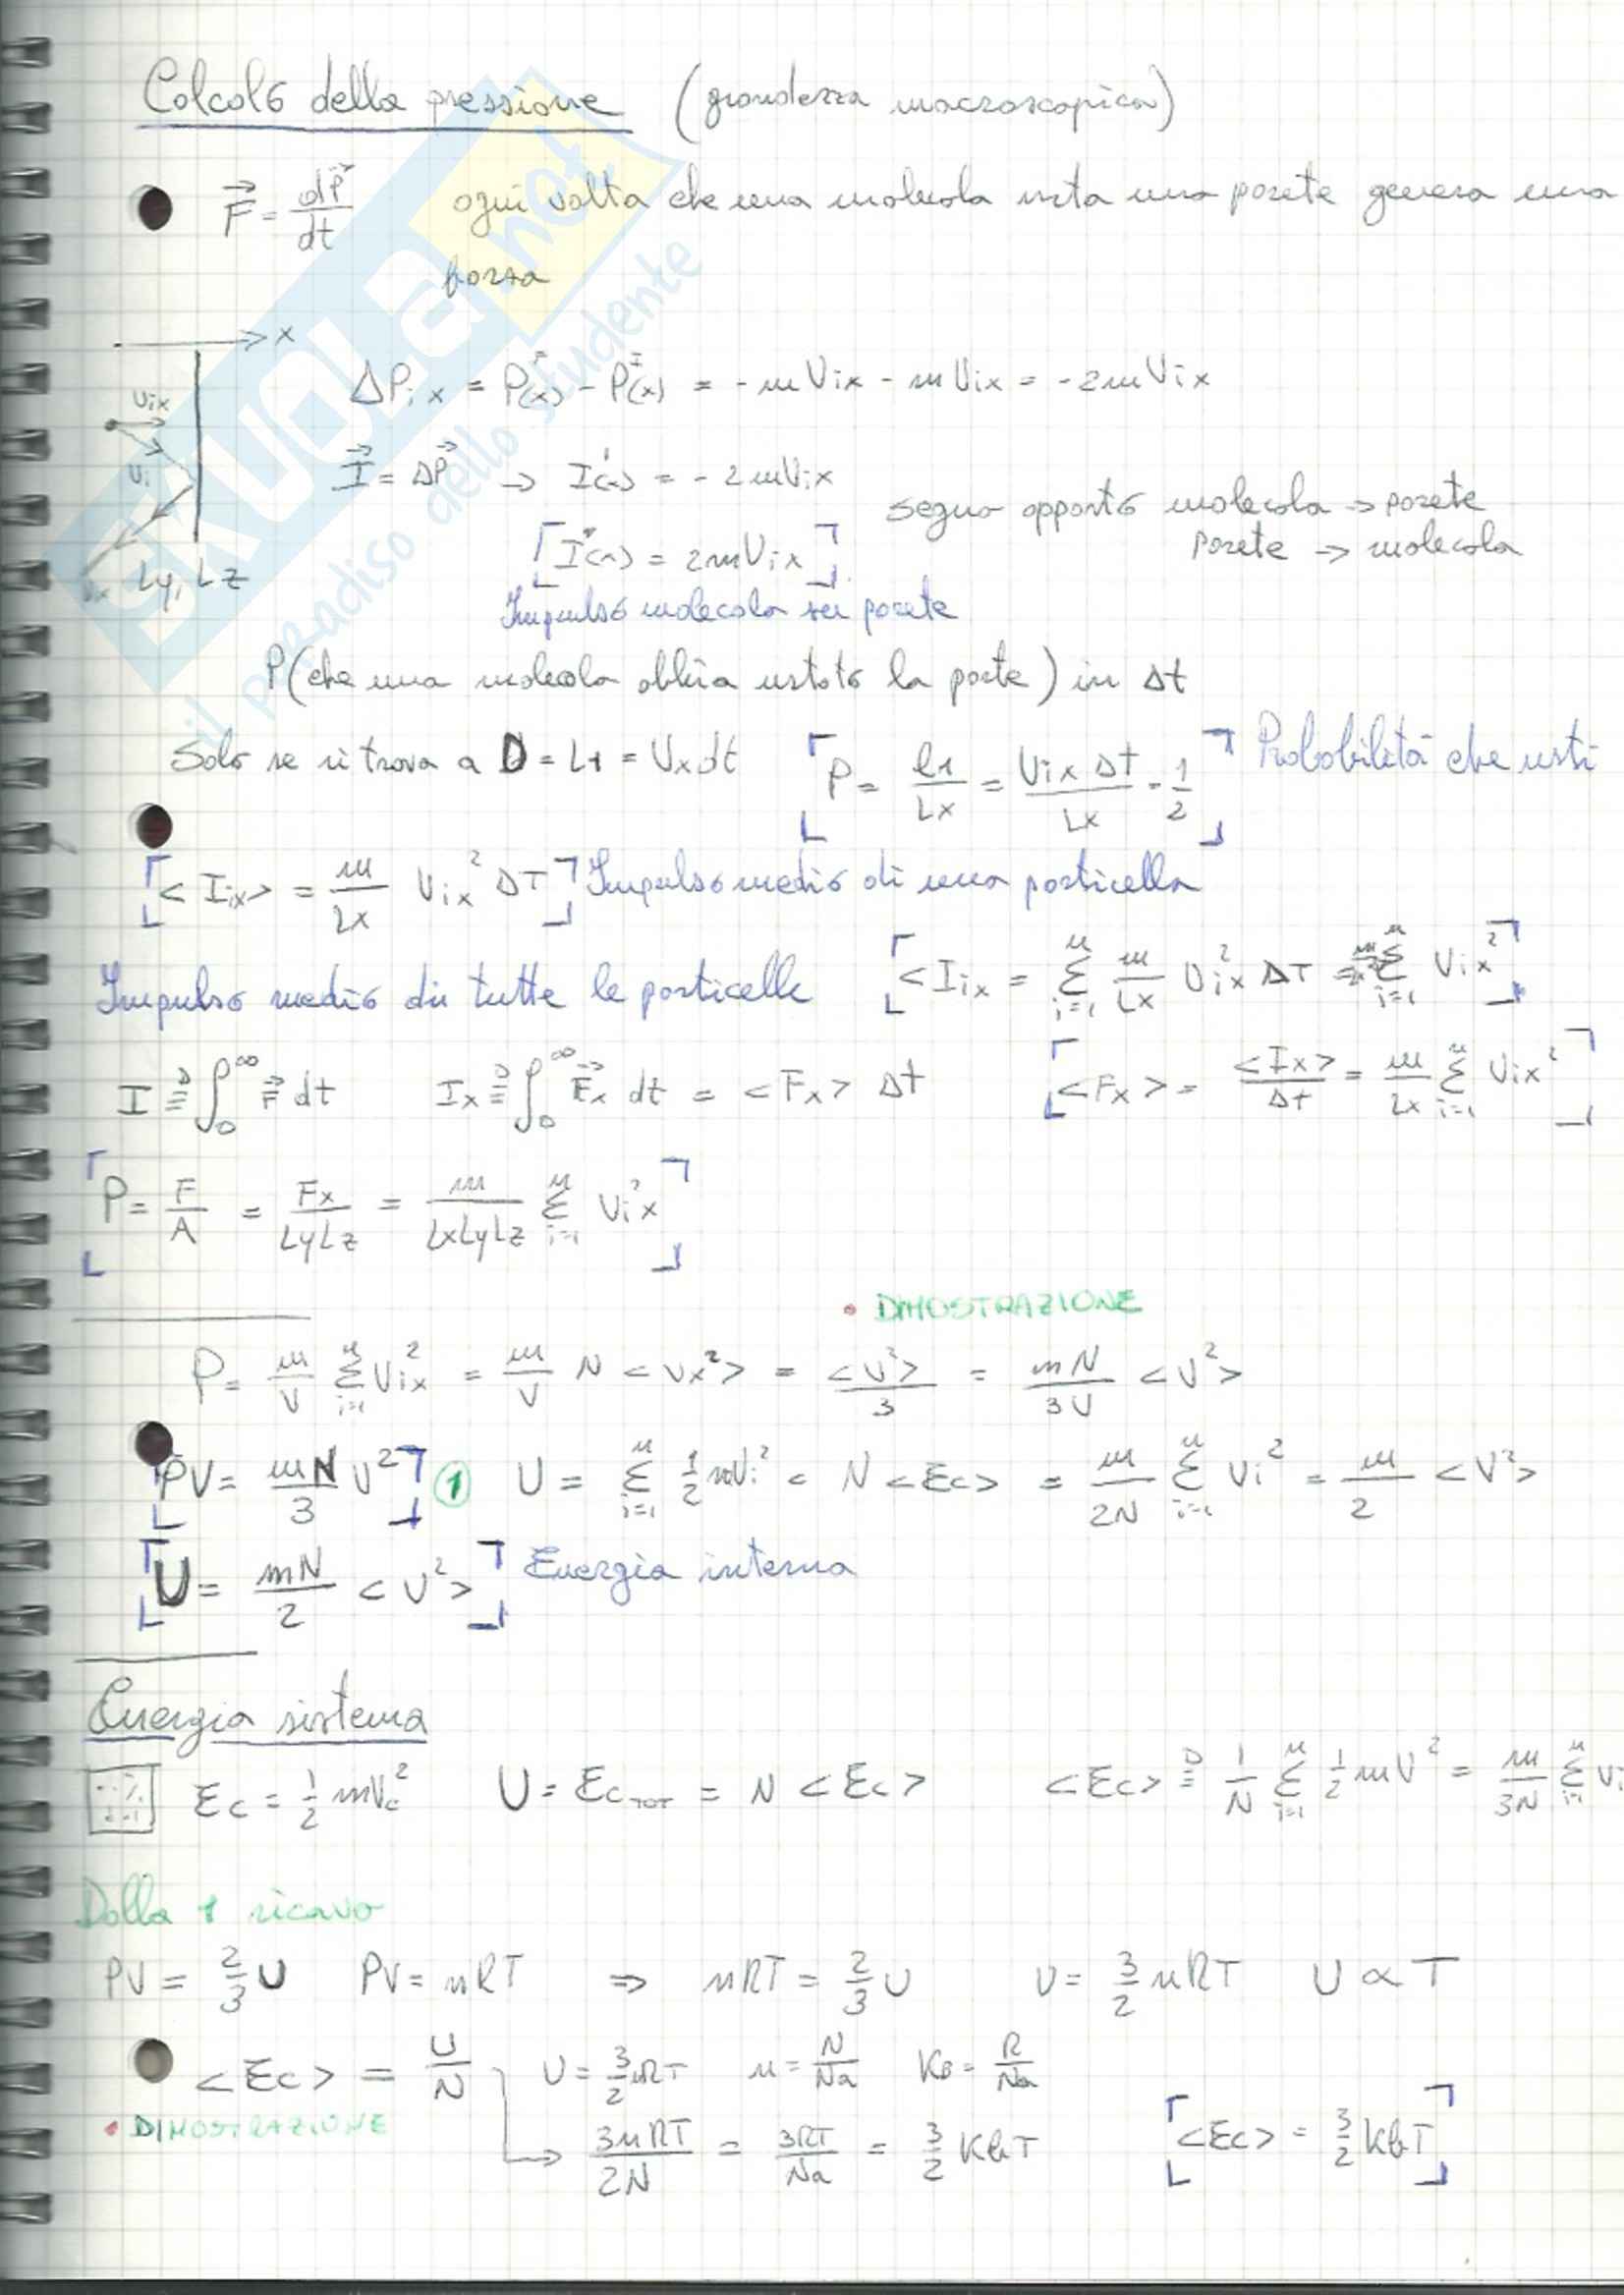 Calcolo della pressione (grandezza macroscopica)
F⃗ = dP⃗/dt ogni volta che una molecola urta una parete genera una
forza
→ x
Vix
ΔPi x = P(x)ᶠ - P(x)ᴵ = - mVix - mVix = -2mVix
Vi
I⃗ = ΔP⃗ → I(x) = - 2mVix
segno opposto molecola → parete
parete → molecola
I(x) = 2mVix
Ly, Lz
Impulso molecola su parete
P(che una molecola abbia urtato la parete) in Δt
Solo se si trova a D = L1 = Vxdt P = l1/Lx = VixΔt/Lx · 1/2 Probabilità che urti
<Iix> = m/Lx Vix² ΔT Impulso medio di una particella
Impulso medio di tutte le particelle <Iix = Σ i=1 n m/Lx Vix² ΔT = Σ i=1 n Vix²
I ≡ᴰ ∫₀^∞ F⃗ dt Ix ≡ᴰ ∫₀^∞ F⃗x dt = <Fx> Δt <Fx> = <Ix>/Δt = m/Lx Σ i=1 n Vix²
P = F/A = Fx/LyLz = m/LxLyLz Σ i=1 n Vi²x
• DIMOSTRAZIONE
P = m/V Σ i=1 n Vix² = m/V N <Vx²> = <V²>/3 = mN/3V <V²>
PV = mN/3 V² ① U = Σ i=1 n 1/2 mVi² = N <Ec> = m/2N Σ i=1 n Vi² = m/2 <V²>
U = mN/2 <V²> Energia interna
Energia sistema
Ec = 1/2 mVc² U = Ec TOT = N <Ec> <Ec> ≡ᴰ 1/N Σ i=1 n 1/2 mV² = m/3N Σ i=1 n Vi
Dalla 1 ricavo
PV = 2/3 U PV = nRT ⇒ nRT = 2/3 U U = 3/2 nRT U ∝ T
<Ec> = U/N U = 3/2 nRT n = N/Na KB = R/Na
• DIMOSTRAZIONE
→ 3nRT/2N = 3RT/Na = 3/2 KbT <Ec> = 3/2 KbT
SKUOLA.net
il paradiso dello studente